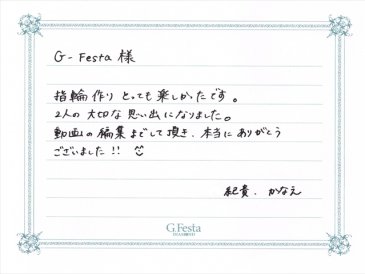 G-Festa 様
指輪作りとっても楽しかったです。
2人の大切な思い出になりました。
動画の編集までして頂き、本当にありがとう
ございました!!
紀貴、かなえ
G.Festa